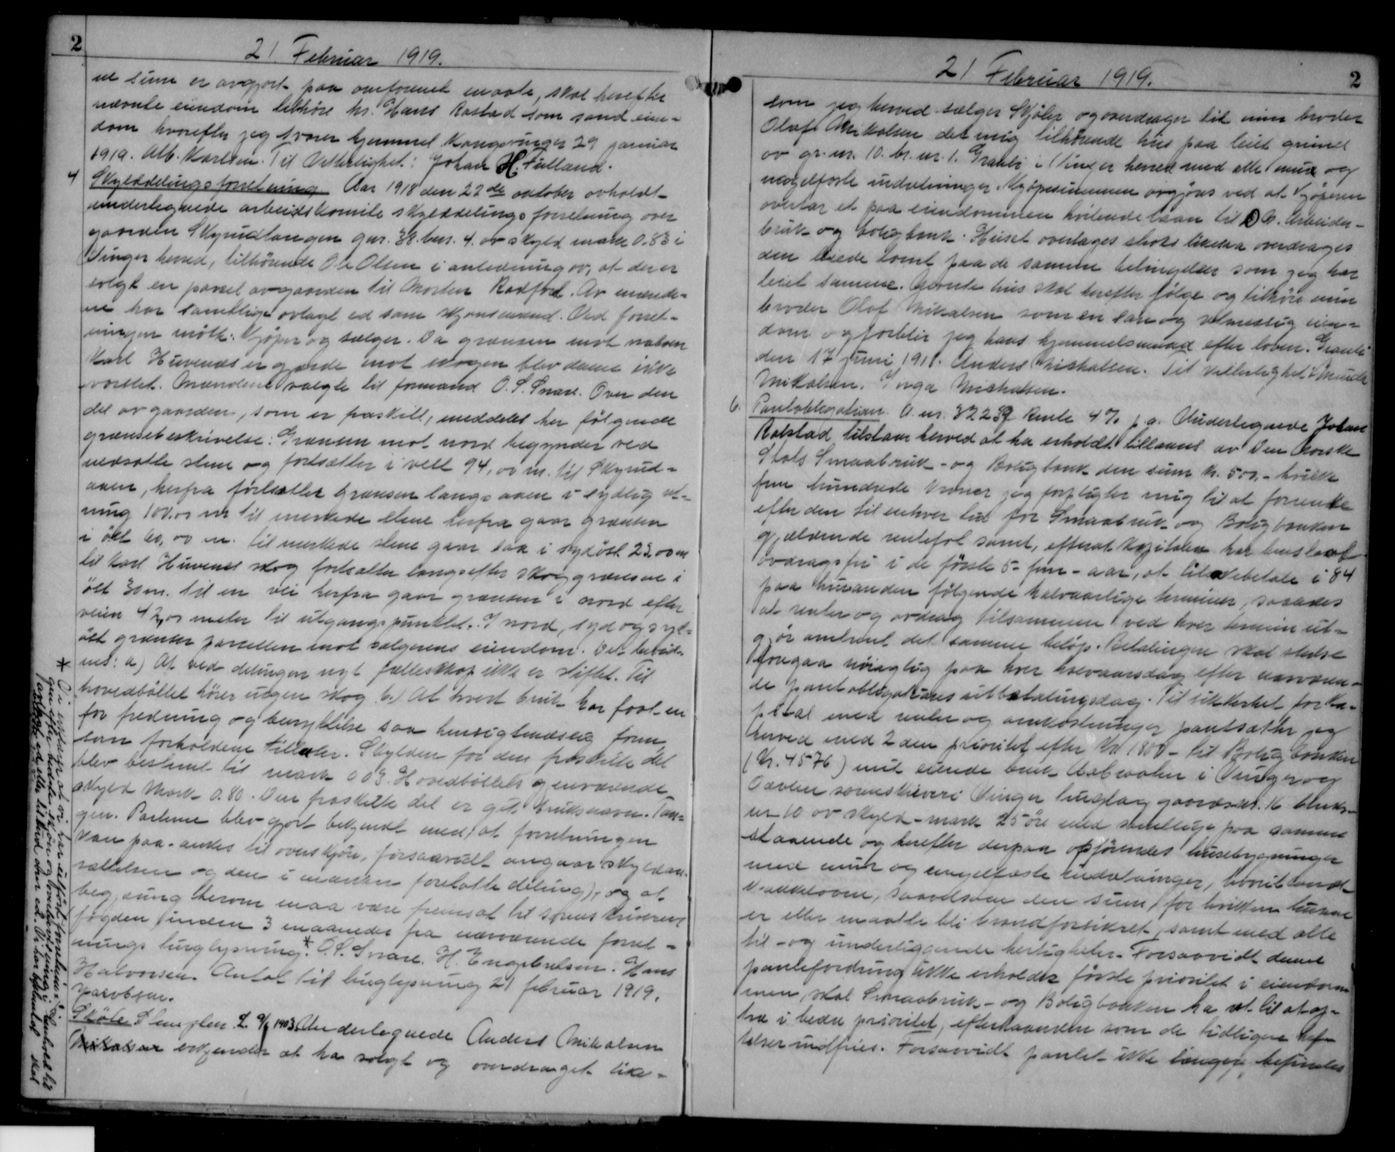 2
21 Februar 1919.
ne sum er avgjort paa omforenet maate, skal herefter
nævnte eiendom tilhöre hr. Hans Rastad som sand eien-
dom hvorefter jeg svarer hjemmel Kongsvinger 29 januar
1919. Alb. Karlsen. Til Vitterlighet: Johan H Fulland.
4 Skylddelingsforretning Aar 1918 den 22de oktober avholdt
undertegnede arbeidskomite skylddelingsforretning over
gaarden Skyrudtangen gnr. 38 bnr. 4. av skyld mark 0.83 i
Vinger herred, tilhörende O. Olsen i anledning av, at der er
solgt en parcel av gaarden til Morten Rodfod. Av mænde-
ne har samtlige avlagt ed som skjönsmænd. Ved forret-
ningen mötte: Kjöper og sælger. Da grænsen mot naboen
Karl Huvenes er gjerde mot skogen blev denne ikke
varslet. Mændene valgte til formand O. S. Snare. Over den
del av gaarden, som er fraskilt, meddeles her fölgende
grænsebeskrivelse: Grænsen mot nord begynder ved
nedsatte stene og fortsætter i vest 94,00 m. til Skyrud-
aaen, herfra fortsætter grænsen langs aaen i sydlig ret-
ning 100.00 m til merkede stene herfra gaar grænsen
i öst 60,00 m. til merkede stene gaar saa i sydöst 22.00 m
til Karl Huvenes skog fortsætter langsefter skoggrænsen i
öst 30 m. til en vei herfra gaar grænsen i nord efter
veien 42,00 meter til utgangspunktet. I nord, syd og syd-
öst grænser parcellen mot sælgerens eiendom. Det bevid-
nes: a) At ved delingen nyt fælleskap ikke er stiftet. Til
hovedböllet hörer ingen skog b.) At hvert bruk har faat en
for fredning og benyttelse saa hensigtsmæssig form
som forholdene tillater. Skylden for den fraskilte del
blev bestemt til mark 0 03. Hovedböllets gjenværende
skyld Mark 0.80. Den fraskilte del er git bruksnavn. Tan-
gen. Parterne blev gjort bekjendt med, at forretningen
kan paa-ankes til overskjön, forsaavidt angaar skyldan-
sættelsen og den i marken foretatte deling), og at
begjæring herom maa være fremsat til sorenskriveren
(fogden) inden 3 maaneder fra nærværende forret-
nings tinglysning.* O. S. Snare. H. Engebretsen. Hans
Halvorsen. Antat til tinglysning 21 februar 1919.
Jacobsen.
Sköte Stemplen 2 9/ 1903 Undertegnede Anders Mikalsen
Mikalsen erkjender at ha solgt og overdraget like-
* Vi erklærer at vi har utfört forretningen i henhold til
gjen efter bedste skjön og overbevisning
avlagt ed eller tilbud om ed. Vi har bekræftet skal
2
21 Februar 1919.
som jeg herved sælger Skjöler og overdrager til min broder
Olaf Mikalsen det mig tilhörende hus paa leiet grund
av gr. nr. 10. br. nr. 1. Granli i Vinger herred med alle mur og
nagelfaste indretninger. Kjöpesummen avgjöres ved at kjöperen
overtar et paa eiendommen heftende laan til D.N. Arbeider-
bruk og boligbank. Huset overtages straks likesaa overdrages
den leiede tomt paa de samme betingelser som jeg har
leiet samme. Nævnte hus skal herefter fölge og tilhöre min
broder Olaf Mikalsen som en sand og retmæssig eien-
dom og forblir jeg hans hjemmelsmand efter loven. Granli
den 17 juni 1918. Anders Mikalsen. Til vitterlighet
Mikalsen. Inga Mikalsen.
6. Pantobligation A. nr. 32239 Rente 4% p. a. Undertegnede Johan
Ralstad tilstaar herved at ha erholdt tillaans av Den Norske
Stats Smaabruk- og Boligbank den sum kr. 500,- hvilke
fem hundrede kroner jeg forpligter mig til at forrente
efter den til enhver tid for Smaabruk og Boligbanken
gjældende rentefot samt, efterat kapitalen har henstaat
avdragsfri i de förste 5- fem-aar, at tilbakebetale i 84
paa hinanden fölgende halvaarlige terminer, saaledes
at renter og avdrag tilsammen ved hver termin ut-
gjör omtrent det samme belöp. Betalingen skal stedse
foregaa nöiagtig paa hver halvaarsdag efter nærværen-
de pantobligations utbetalingsdag. Til sikkerhet for ka-
pital med renter og omkostninger pantsætter jeg
herved med 2den prioritet efter kr 1800- til Boligbanken
(Nr. 4576) mit eiende bruk Aabraaten i Vinger og
Odalen sorenskriveri Vinger tinglag gaardsnr. 16 bruks-
nr 10 av skyld-mark 25 öre med samtlige paa samme
staaende og herefter derpaa opförendes husebygninger
med mur og nagelfaste indretninger, hvoriblandt
kakkelovne, saavelsom den sum, for hvilken husene
er eller maatte bli brandforsikret, samt med alle
til- og underliggende herligheter. Forsaavidt denne
pantefordring ikke erholder förste prioritet i eiendom-
men, skal Smaabruk- og Boligbanken ha ret til at op-
træ i bedre prioritet, efterhaanden som de tidligere hef-
telser indfries. Forsaavidt pantet ikke længer befindes